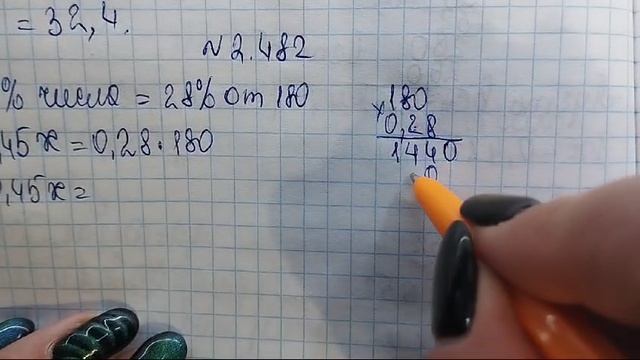 = 32,4.
№ 2.482
% числа = 28% от 180
,45x = 0,28 · 180
,45x =
× 180
0,28
1440
0